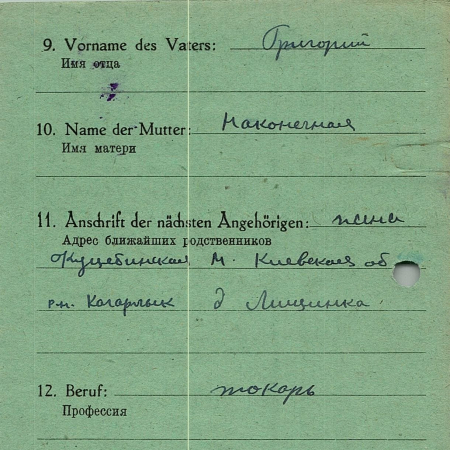 9. Vorname des Vaters: Григорий
Имя отца
10. Name der Mutter: Наконечная
Имя матери
11. Anschrift der nächsten Angehörigen: жена
Адрес ближайших родственников
М. Киевская об
р-н. Кагарлык д Лищинка.
12. Beruf: токарь
Профессия